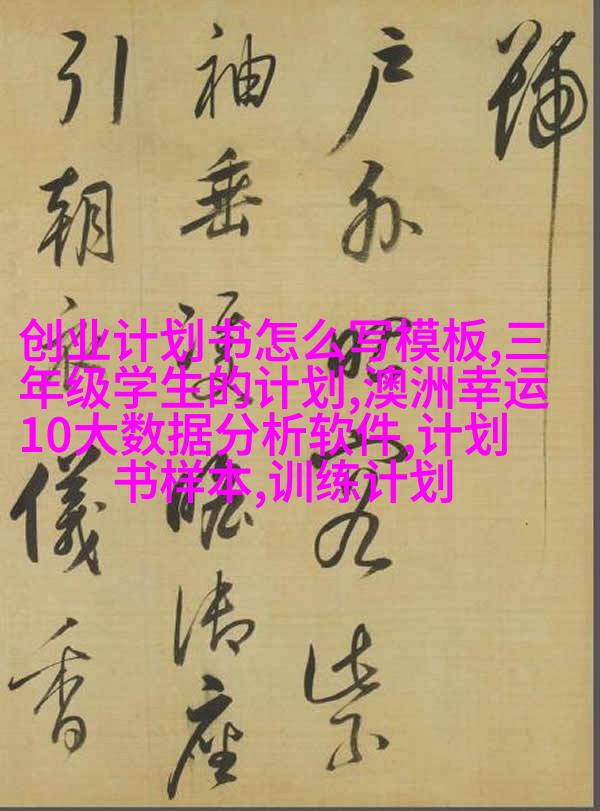 创业计划书怎么写模板,三
年级学生的计划,澳洲幸运
10大数据分析软件,计划
书样本,训练计划
號
户外昭容紫
袖垂雙瞻御座
引朝儀香